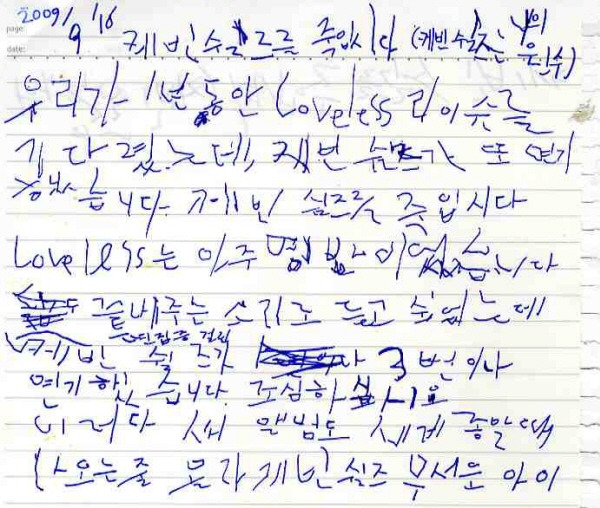 2009/9/16
page:
date:
케빈쉴즈를 죽입시다 (케빈쉴즈는 나의 원수)
우리가 1년 동안 Loveless 리이슈를
기다렸는데, 케빈 쉴즈가 또 연기
했습니다. 케빈 쉴즈를 죽입시다
Loveless는 아주 명반이었습니다
좋은 소리로 듣고 싶었는데
케빈 쉴즈가 3번이나
연기했습니다. 조심하십시요
이러다 새 앨범도 세계 종말때
나오는줄 몰라 케빈쉴즈 무서운 아이